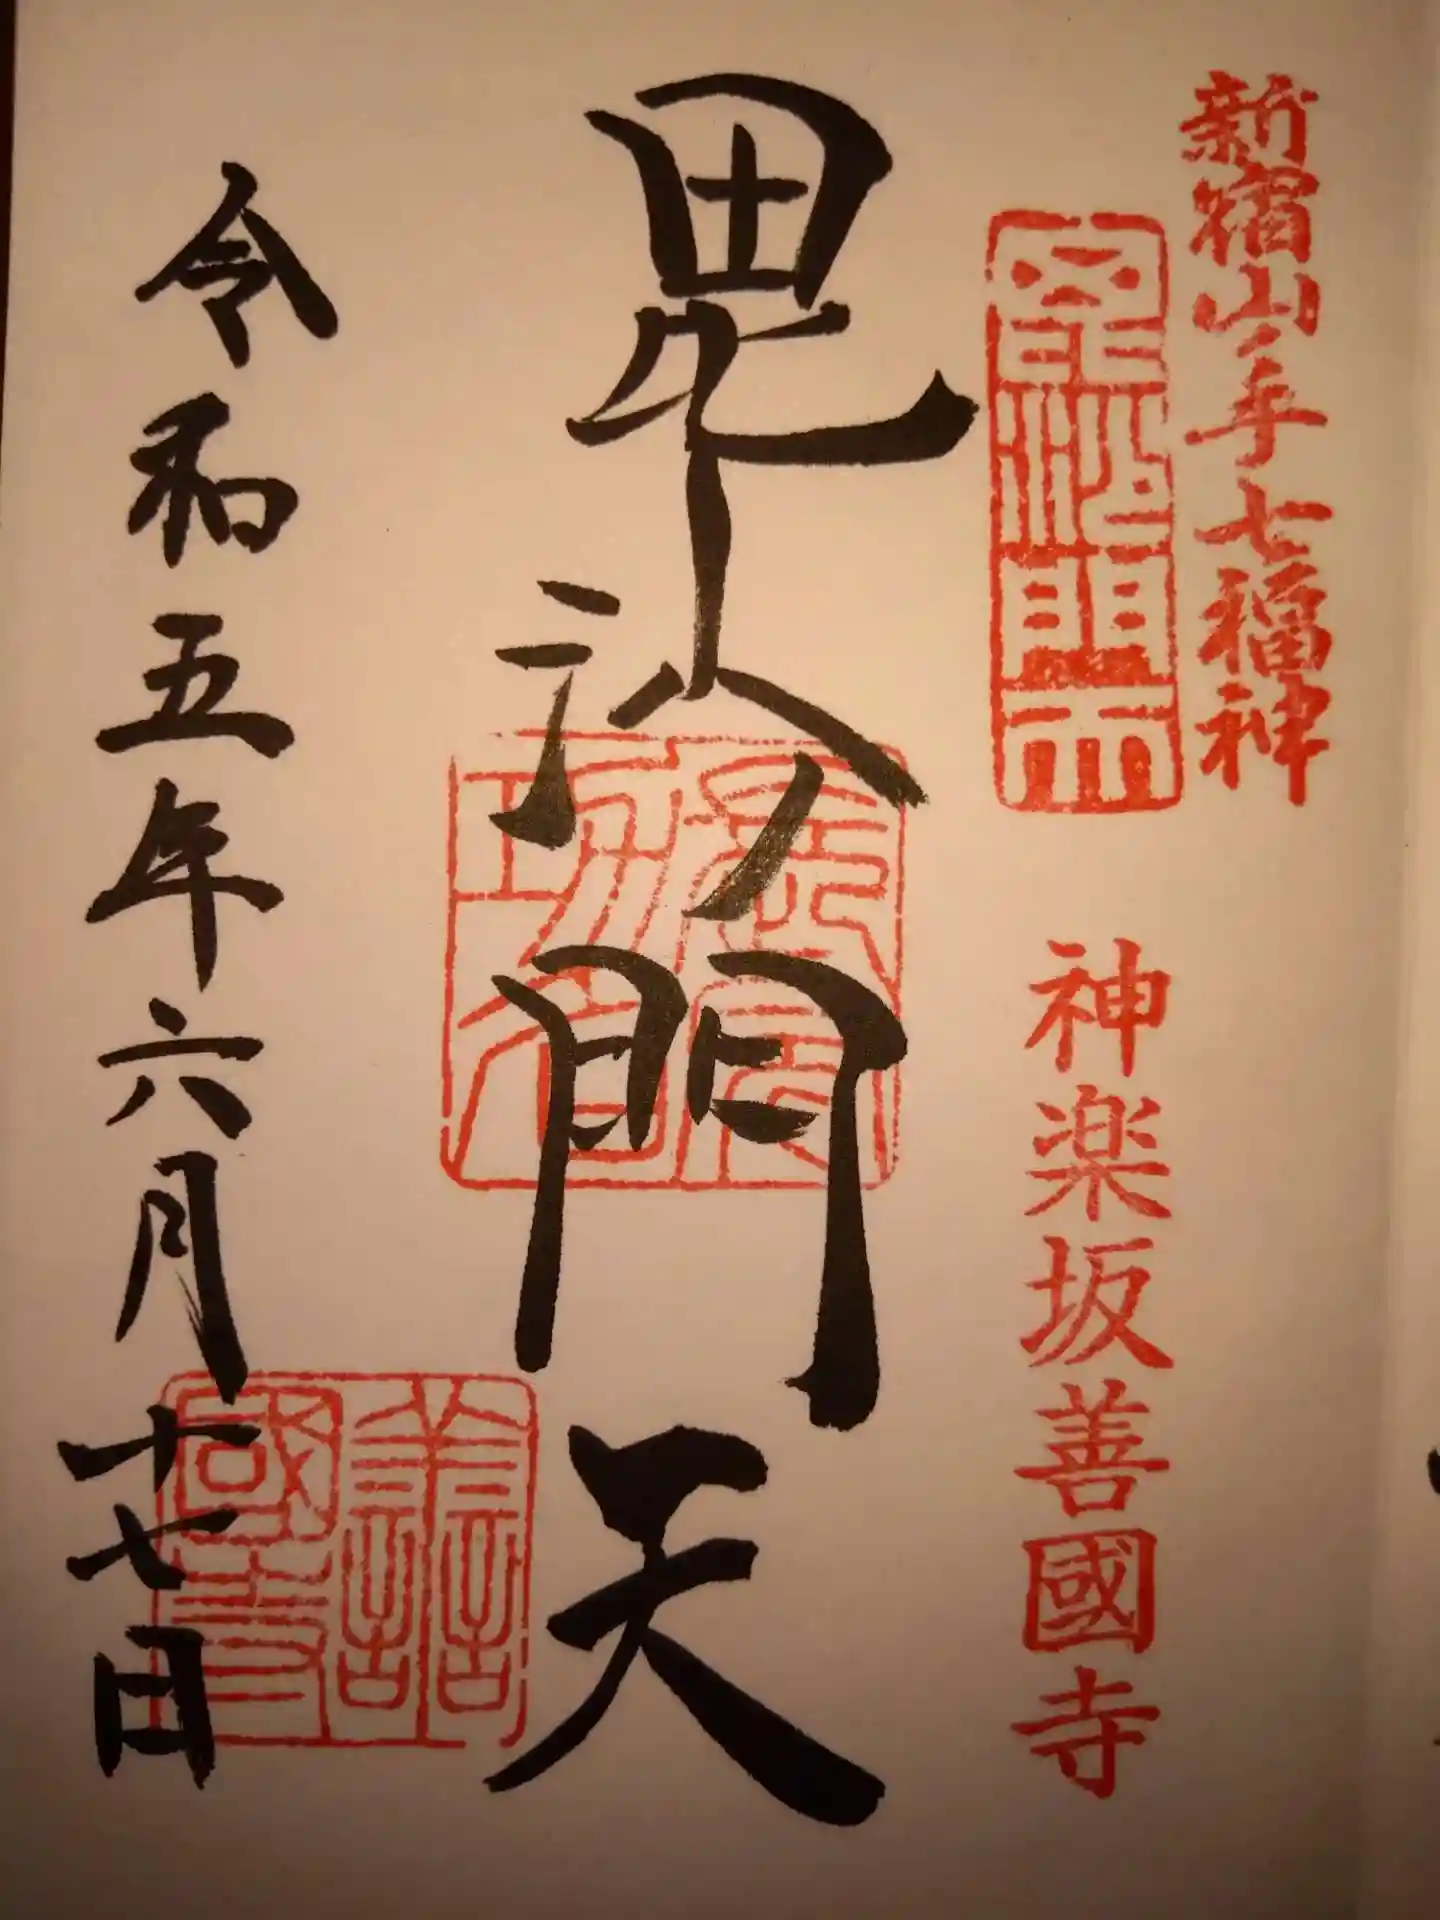 新宿山ノ手七福神
神楽坂善國寺
毘沙門天
令和五年六月十七日
善國寺